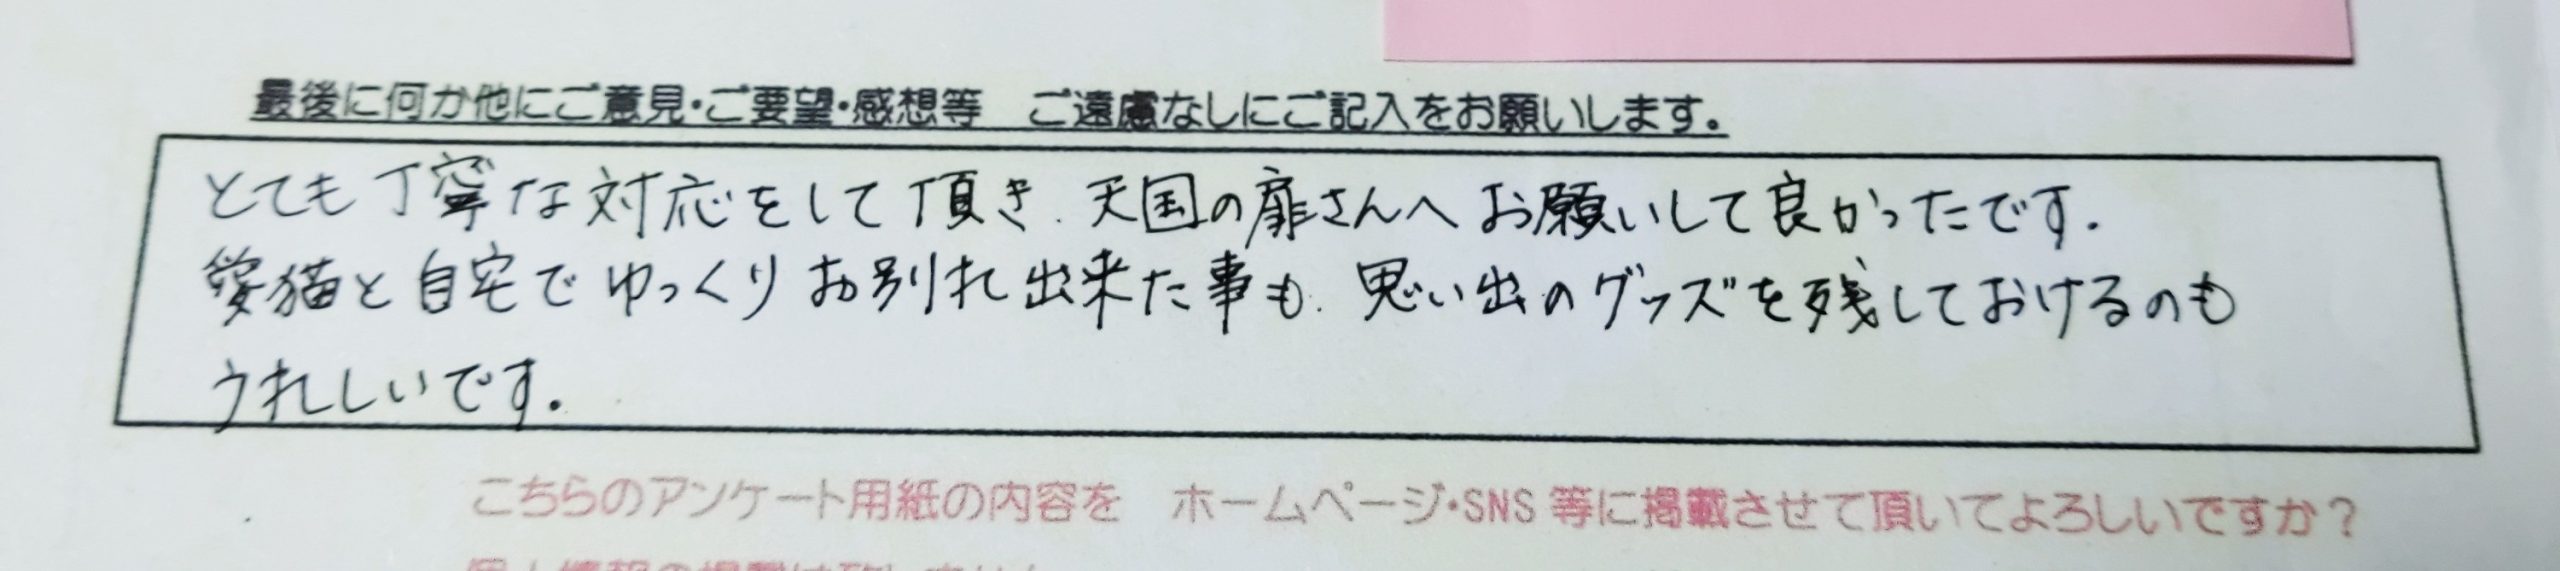 最後に何か他にご意見・ご要望・感想等　ご遠慮なしにご記入をお願いします。
とても丁寧な対応をして頂き、天国の扉さんへお願いして良かったです。
愛猫と自宅でゆっくりお別れ出来た事も、思い出のグッズを残しておけるのも
うれしいです。
こちらのアンケート用紙の内容を　ホームページ・SNS 等に掲載させて頂いてよろしいですか？